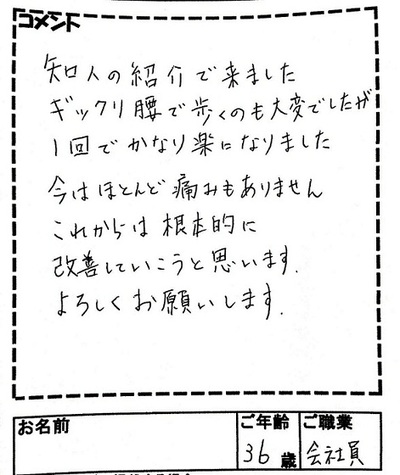 コメント
知人の紹介で来ました
ギックリ腰で歩くのも大変でしたが
1回でかなり楽になりました
今はほとんど痛みもありません
これからは根本的に
改善していこうと思います.
よろしくお願いします.
お名前
ご年齢 ご職業
36歳 会社員